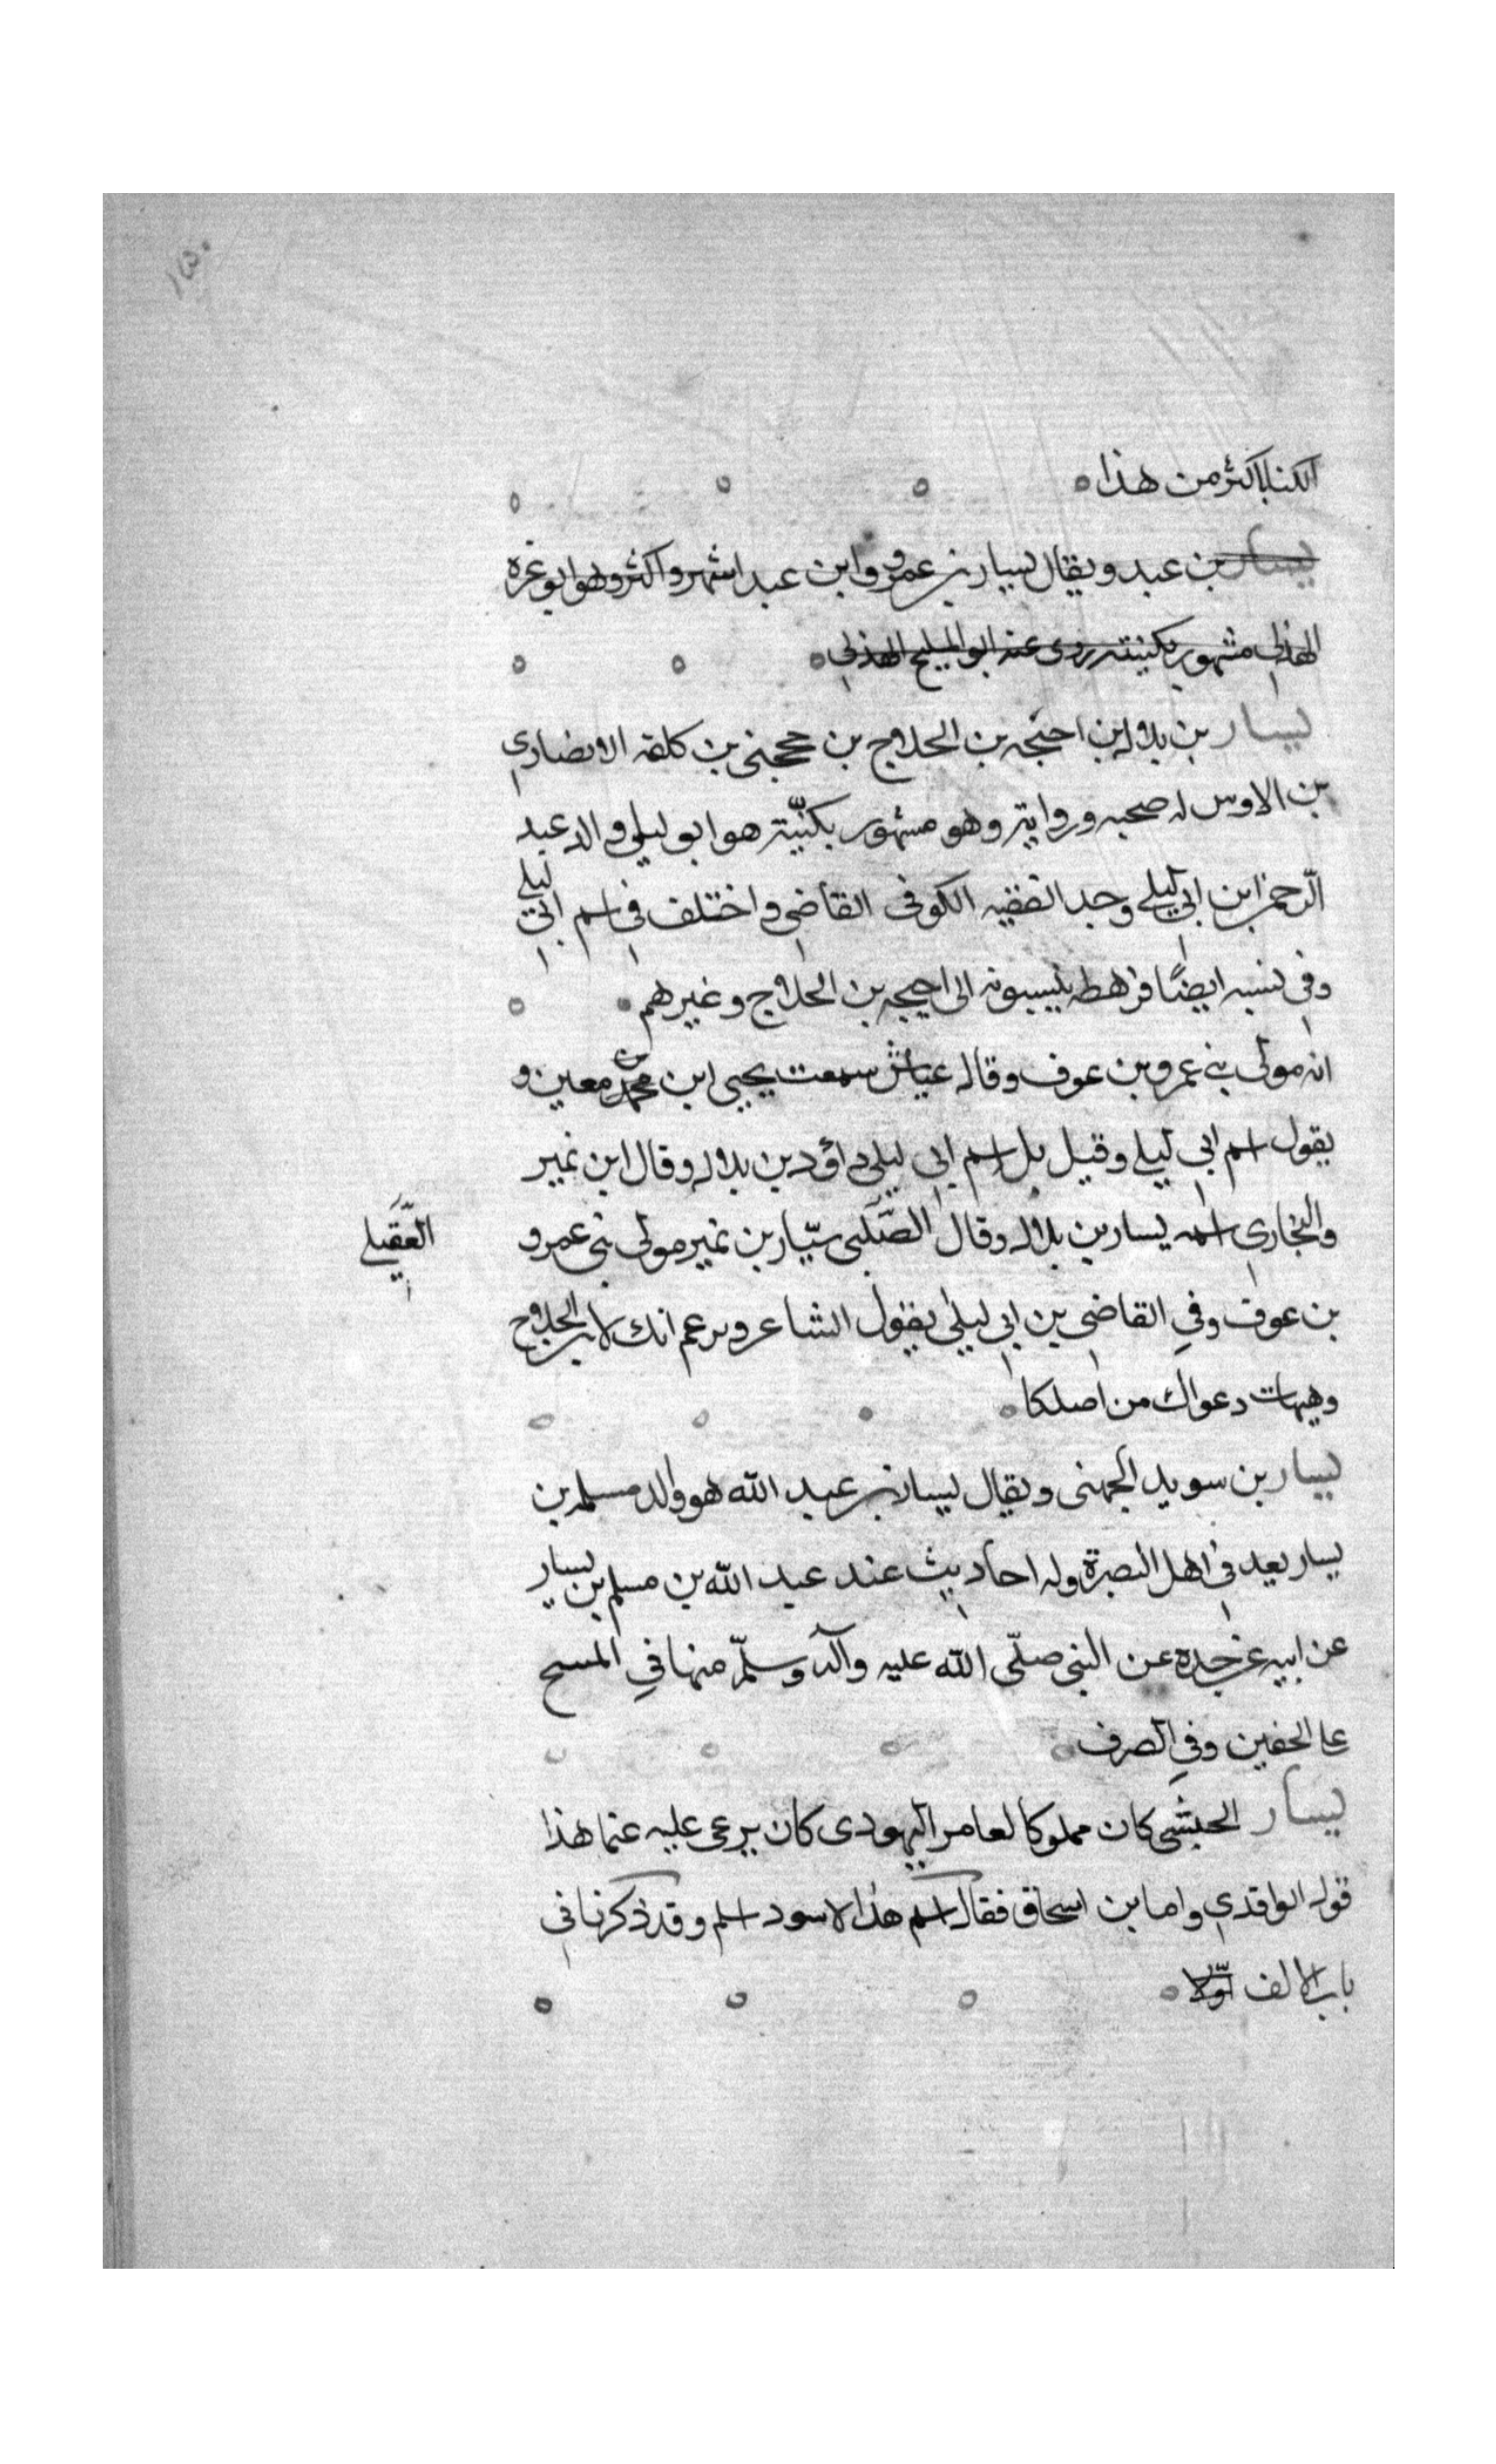 ١٣٠
الكتاب اكثر من هذا
يسار بن عبد ويقال يسار بن عمرو وابن عبد اشهر واكثر وهو ابو عزة
الهذلي مشهور بكنيته روى عنه ابو المليح الهذلي
يسار بن بلال بن احيحه بن الحلاج بن حججبى بن كلفه الانصاري
بن الاوس له صحبه ورواية وهو مشهور بكنّيته هو ابو ليلى والد عبد
الرحمن ابن ابي ليلى وجد الفقيه الكوفى القاضي واختلف في اسم ابي ليلى
وفي نسبه ايضًا فرهط ينسبونه الى احيحه بن الحلاج وغيرهم
انه مولى بني عمرو بن عوف وقال عباش سمعت يحيى ابن محمّد معين و
يقول اسم ابي ليلى وقيل بل اسم ابي ليلى داؤد بن بلال وقال ابن نمير
والبخاري اسمه يسار بن بلال وقال الصّكبى سيّار بن نمير مولى بني عمرو
العَقَيلي
بن عوف وفي القاضي بن ابي ليلى يقول الشاعر ويزعم انك لابن الحلاج
وهيهات دعواك من اصلكا
يسار بن سويد الجهنى ويقال يسار بن عبد الله هو والد مسلم بن
يسار يعد في اهل البصرة وله احاديث عند عبد الله بن مسلم بن يسار
عن ابيه عن جده عن النبي صلّى الله عليه وآله وسلّم منها في المسح
على الخفين وفي الصرف
يسار الحبشي كان مملوكا لعامر اليهودى كان يرعى عليه غنما هذا
قول الواقدي واما بن اسحاق فقال اسم هذا الاسود اسلم وقد ذكرنا في
باب الالف اوّلا